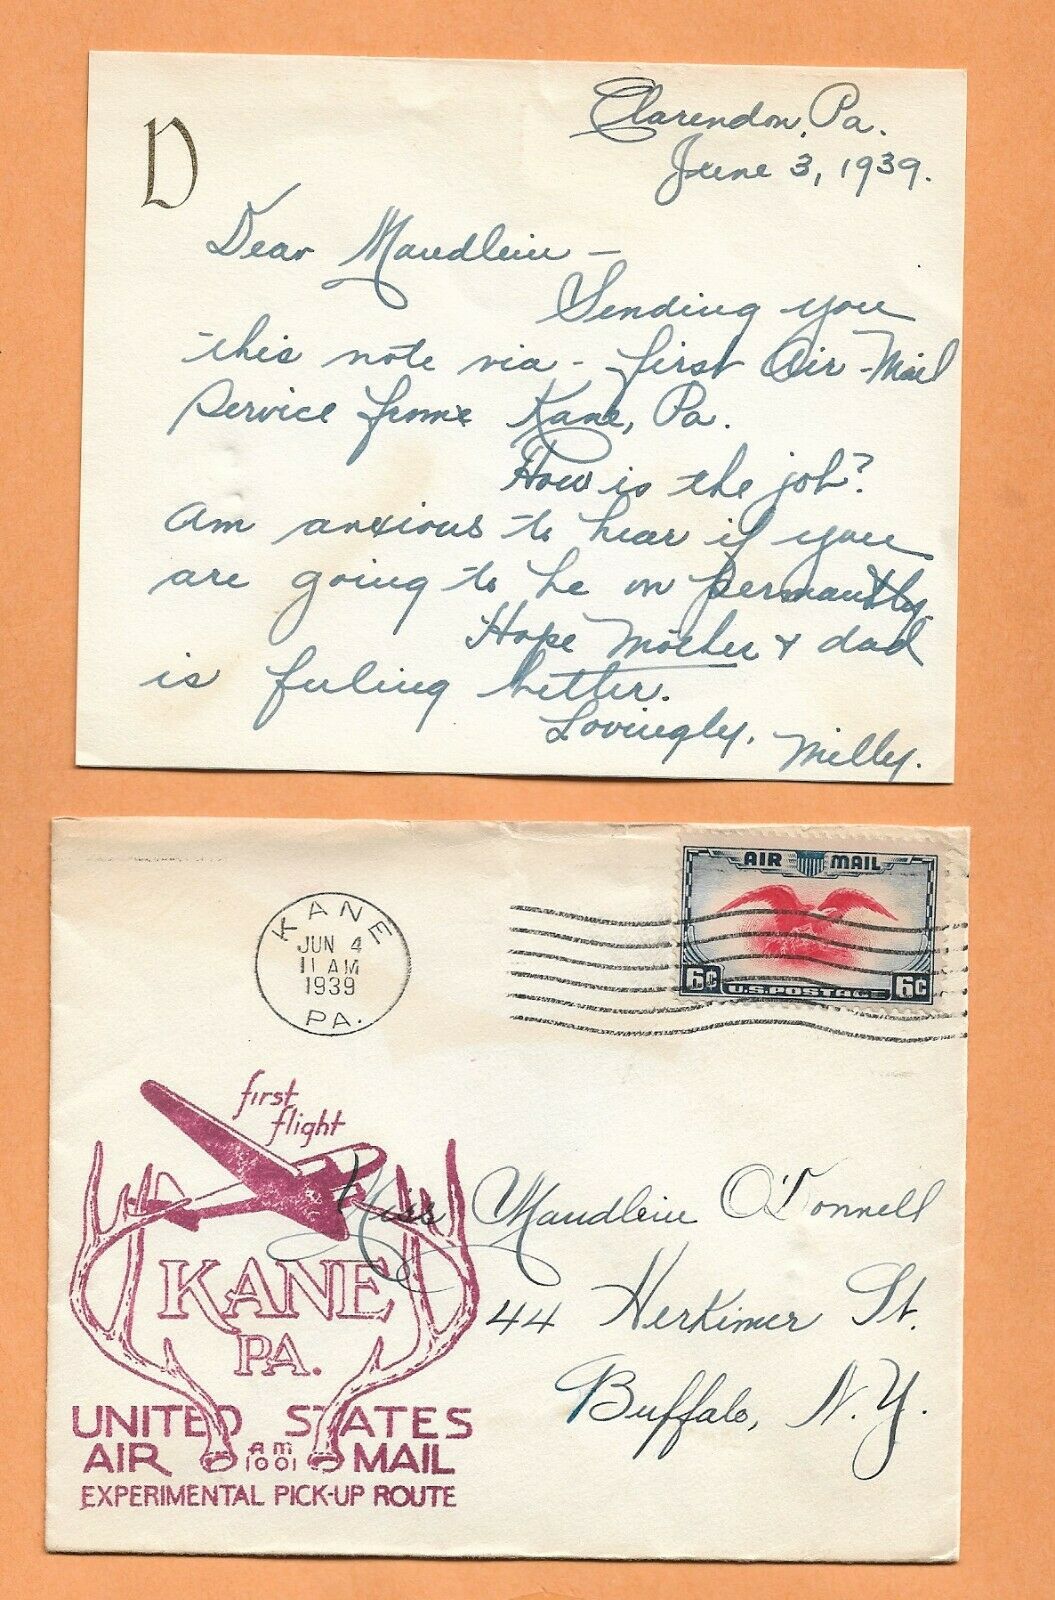 D
Clarendon, Pa.
June 3, 1939.
Dear Maudlein -
Sending you
this note via - first Air-Mail
Service from Kane, Pa.
How is the job?
Am anxious to hear if you
are going to be on permantly.
Hope Mother & dad
is feeling better.
Lovingly, Milly.
KANE
JUN 4
11 AM
1939
PA.
AIR MAIL
6¢ U.S. POSTAGE 6¢
first
flight
KANE
PA.
UNITED STATES
AIR AM MAIL
1001
EXPERIMENTAL PICK-UP ROUTE
Miss Maudlein O'Donnell
44 Herkimer St.
Buffalo, N.Y.